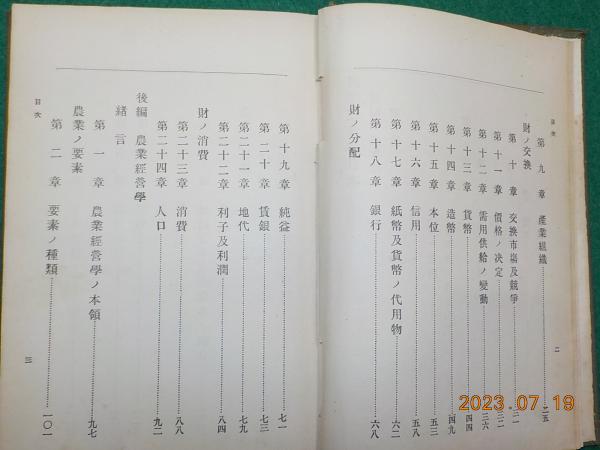 目次
第九章 產業組織 二五
財ノ交換
第十章 交換市場及競爭 三一
第十一章 價格ノ決定 三二
第十二章 需用供給ノ變動 三六
第十三章 貨幣 四四
第十四章 造幣 四九
第十五章 本位 五三
第十六章 信用 五八
第十七章 紙幣及貨幣ノ代用物 六二
第十八章 銀行 六八
財ノ分配
二
第十九章 純益 七一
第二十章 賃銀 七三
第二十一章 地代 七七
第二十二章 利子及利潤 八四
財ノ消費
第二十三章 消費 八八
第二十四章 人口 九二
後編 農業經營學
緒言
第一章 農業經營學ノ本領 九七
農業ノ要素
第二章 要素ノ種類 一〇一
目次
三
2023 07 19